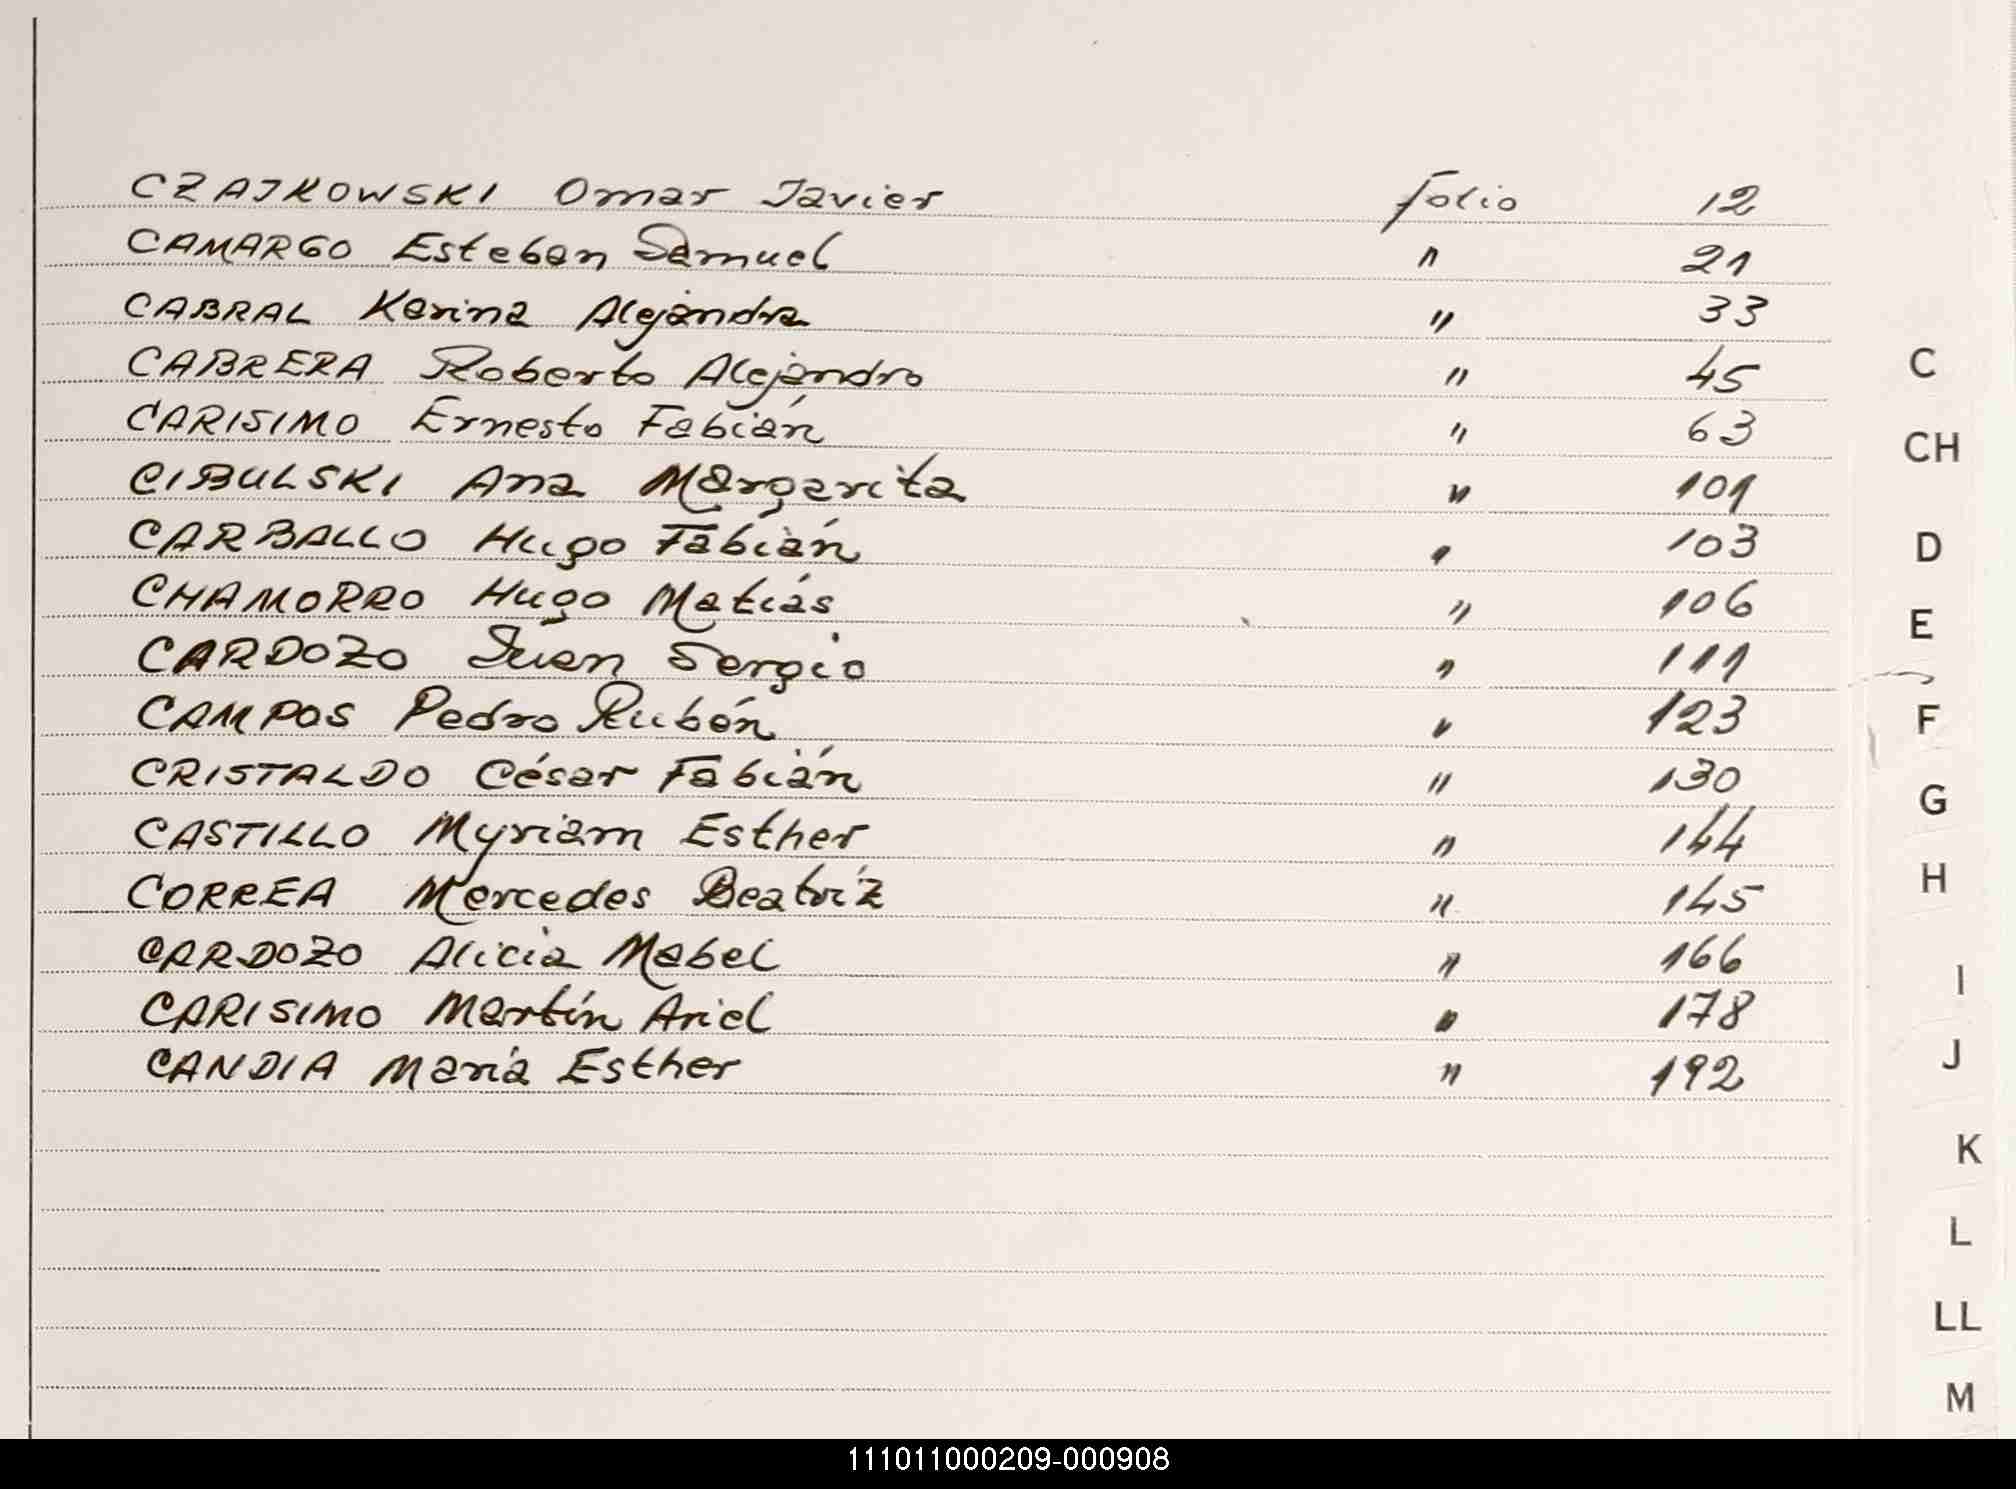 CZAJKOWSKI Omar Javier folio 12
CAMARGO Esteban Samuel " 21
CABRAL Karina Alejandra " 33
CABRERA Roberto Alejandro " 45
CARISIMO Ernesto Fabián " 63
CIBULSKI Ana Margarita " 101
CARBALLO Hugo Fabián " 103
CHAMORRO Hugo Matías " 106
CARDOZO Juan Sergio " 111
CAMPOS Pedro Rubén " 123
CRISTALDO César Fabián " 130
CASTILLO Myriam Esther " 144
CORREA Mercedes Beatríz " 145
CARDOZO Alicia Mabel " 166
CARISIMO Martín Ariel " 178
CANDIA María Esther " 192
C
CH
D
E
F
G
H
I
J
K
L
LL
M
111011000209-000908